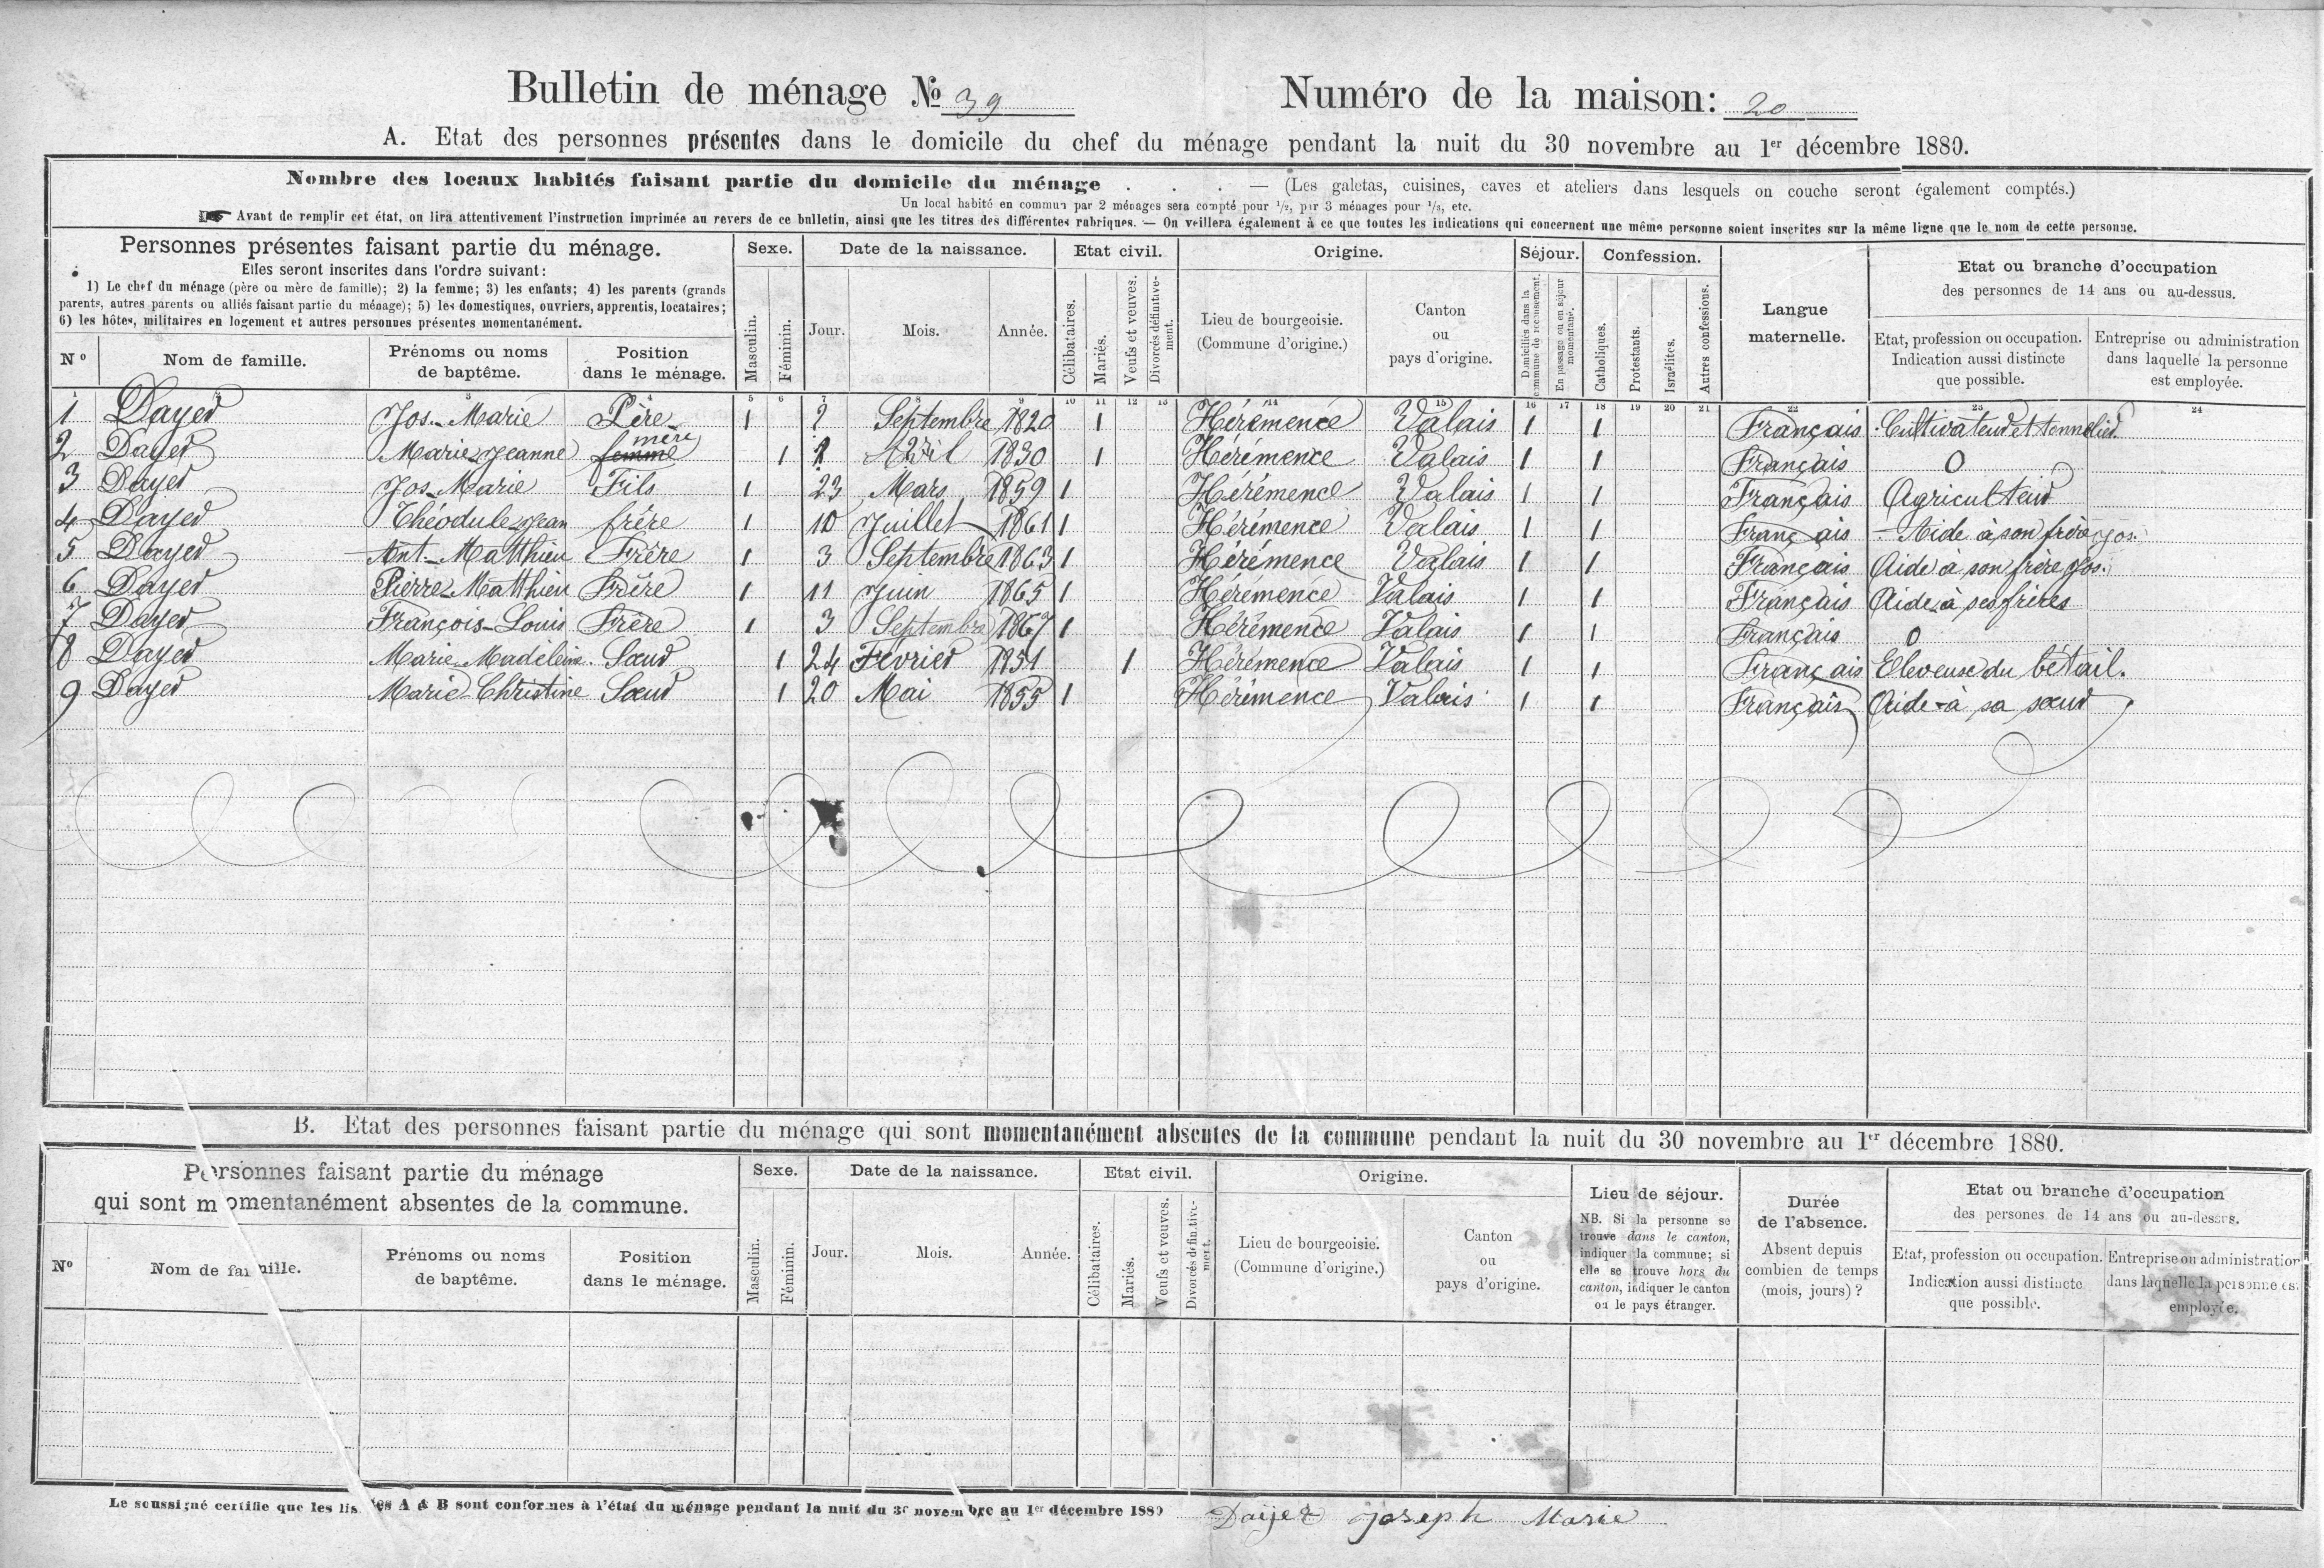 Bulletin de ménage № 39
Numéro de la maison: 20
A. Etat des personnes présentes dans le domicile du chef du ménage pendant la nuit du 30 novembre au 1er décembre 1880.
Nombre des locaux habités faisant partie du domicile du ménage . . . — (Les galetas, cuisines, caves et ateliers dans lesquels on couche seront également comptés.)
Un local habité en commun par 2 ménages sera compté pour 1/2, par 3 ménages pour 1/3, etc.
Avant de remplir cet état, on lira attentivement l'instruction imprimée au revers de ce bulletin, ainsi que les titres des différentes rubriques. — On veillera également à ce que toutes les indications qui concernent une même personne soient inscrites sur la même ligne que le nom de cette personne.
Personnes présentes faisant partie du ménage.
Elles seront inscrites dans l'ordre suivant:
1) Le chef du ménage (père ou mère de famille); 2) la femme; 3) les enfants; 4) les parents (grands
parents, autres parents ou alliés faisant partie du ménage); 5) les domestiques, ouvriers, apprentis, locataires;
6) les hôtes, militaires en logement et autres personnes présentes momentanément.
No
Nom de famille.
Prénoms ou noms
de baptême.
Position
dans le ménage.
Sexe.
Masculin.
Féminin.
Date de la naissance.
Jour.
Mois.
Année.
Etat civil.
Célibataires.
Mariés.
Veufs et veuves.
Divorcés définitive-
ment.
Origine.
Lieu de bourgeoisie.
(Commune d'origine.)
Canton
ou
pays d'origine.
Séjour.
Domiciliés dans la
commune de recensement.
En passage ou en séjour
momentané.
Confession.
Catholiques.
Protestants.
Israélites.
Autres confessions.
Langue
maternelle.
Etat ou branche d'occupation
des personnes de 14 ans ou au-dessus.
Etat, profession ou occupation.
Indication aussi distincte
que possible.
Entreprise ou administration
dans laquelle la personne
est employée.
1 3 5 6 7 8 9 10 11 12 13 14 15 16 17 18 19 20 21 22 23 24
1 Dayer Jos. Marie Père 1 Septembre 1820 1 Hérémence Valais 1 1 Français Cultivateur et tonnelier
2 Dayer Marie Jeanne femme mère 1 Avril 1830 1 Hérémence Valais 1 1 Français 0
3 Dayer Jos. Marie Fils 1 23 Mars 1859 1 Hérémence Valais 1 1 Français Agriculteur
4 Dayer Théodule Jean frère 1 10 Juillet 1861 1 Hérémence Valais 1 1 Français Aide à son frère Jos.
5 Dayer Ant. Matthieu Frère 1 3 Septembre 1863 1 Hérémence Valais 1 1 Français Aide à son frère Jos.
6 Dayer Pierre Matthieu Frère 1 11 Juin 1865 1 Hérémence Valais 1 1 Français Aide à ses frères
7 Dayer François-Louis Frère 1 3 Septembre 1867 1 Hérémence Valais 1 1 Français 0
8 Dayer Marie Madeleine Sœur 1 24 Février 1851 1 Hérémence Valais 1 1 Français Eleveuse du bétail.
9 Dayer Marie Christine Sœur 1 20 Mai 1855 1 Hérémence Valais 1 1 Français Aide à sa sœur
B. Etat des personnes faisant partie du ménage qui sont momentanément absentes de la commune pendant la nuit du 30 novembre au 1er décembre 1880.
Personnes faisant partie du ménage
qui sont momentanément absentes de la commune.
No
Nom de famille.
Prénoms ou noms
de baptême.
Position
dans le ménage.
Sexe.
Masculin.
Féminin.
Date de la naissance.
Jour.
Mois.
Année.
Etat civil.
Célibataires.
Mariés.
Veufs et veuves.
Divorcés définitive-
ment.
Origine.
Lieu de bourgeoisie.
(Commune d'origine.)
Canton
ou
pays d'origine.
Lieu de séjour.
NB. Si la personne se
trouve dans le canton,
indiquer la commune; si
elle se trouve hors du
canton, indiquer le canton
ou le pays étranger.
Durée
de l'absence.
Absent depuis
combien de temps
(mois, jours)?
Etat ou branche d'occupation
des persones de 14 ans ou au-dessus.
Etat, profession ou occupation.
Indication aussi distincte
que possible.
Entreprise ou administration
dans laquelle la personne es.
employée.
Le soussigné certifie que les listes A & B sont conformes à l'état du ménage pendant la nuit du 30 novembre au 1er décembre 1880 Dayer Joseph Marie